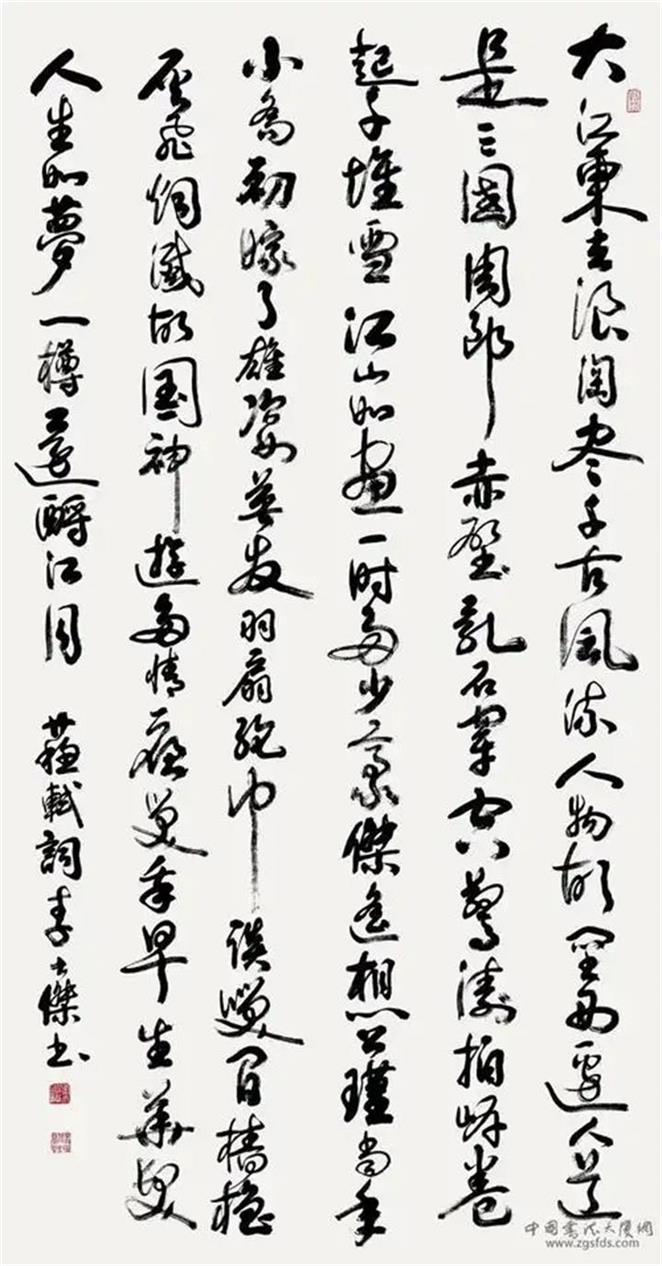 大江東去浪淘盡千古風流人物故壘西邊人道
是三國周郎赤壁亂石穿空驚濤拍岸卷
起千堆雪江山如畫一時多少豪傑遙想公瑾當年
小喬初嫁了雄姿英發羽扇綸巾談笑間檣櫓
灰飛煙滅故國神遊多情應笑我早生華髮
人生如夢一樽還酹江月 蘇軾詞李士傑書
中國書法大廈網
www.zgsfds.com